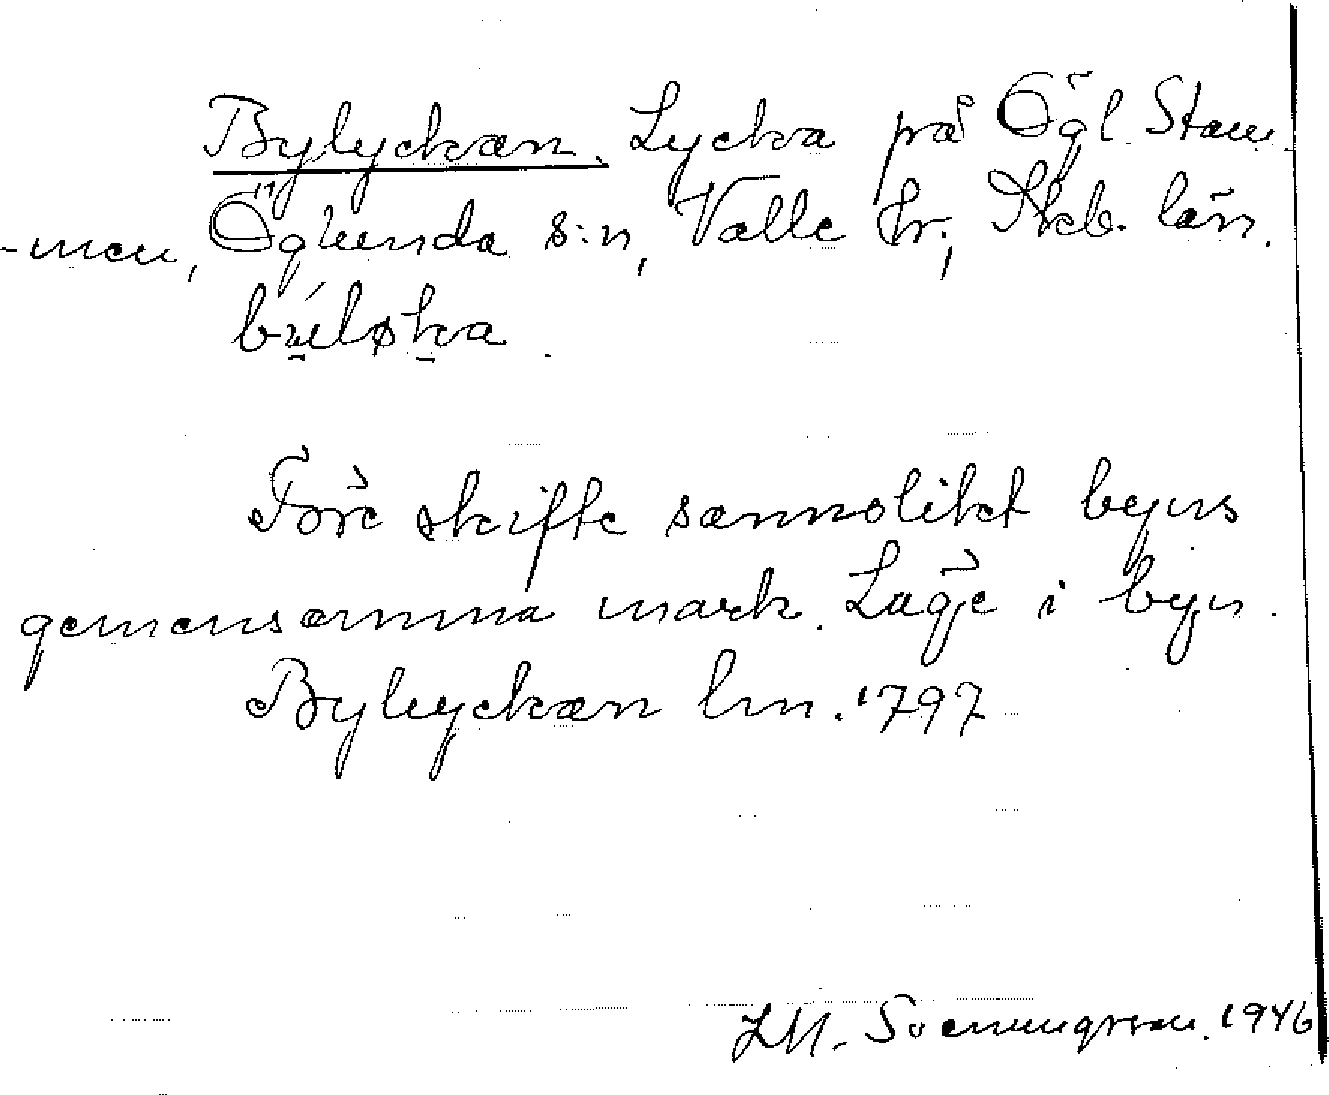 Bylyckan. Lycka på Ögl Stom
-men, Öglunda s:n, Valle hr; Skb. län.
býløka.
Före skifte sannolikt byns
gemensamma mark. Läge i byn.
Bylyckan lm. 1797
1946